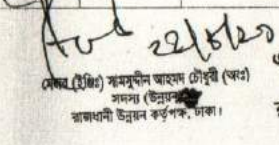 ২২/৮/২০
মেজর (ইঞ্জিঃ) সামসুদ্দীন আহমদ চৌধুরী (অবঃ)
সদস্য (উন্নয়ন)
রাজধানী উন্নয়ন কর্তৃপক্ষ, ঢাকা।